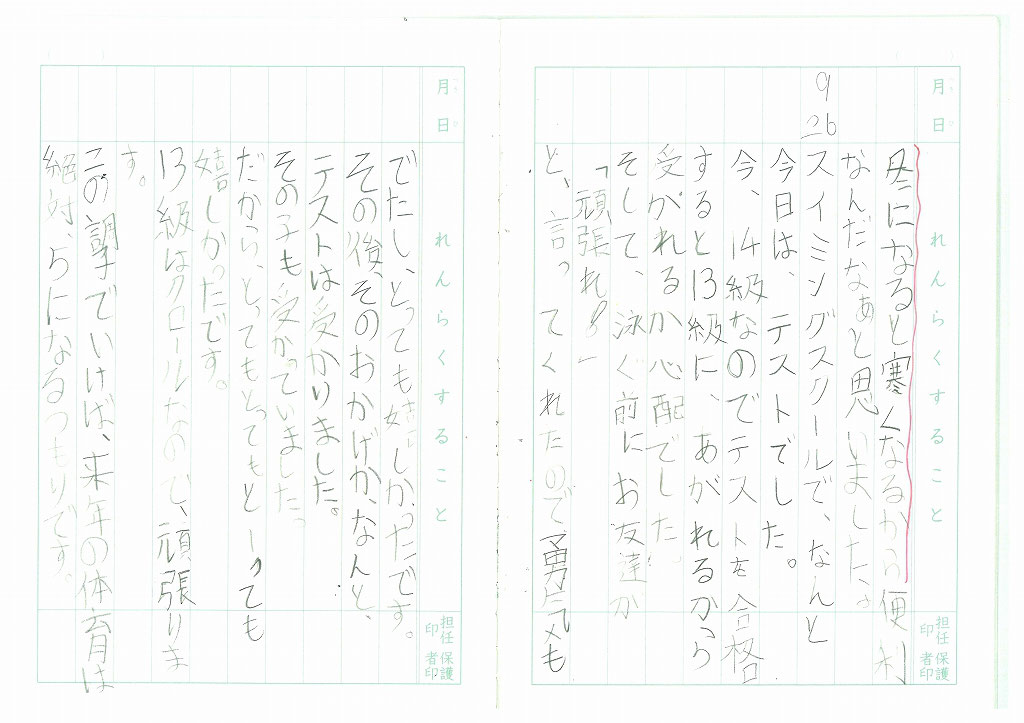 月日 れんらくすること 担任印 保護者印
冬になると寒くなるから便利
なんだなぁと思いました。
9/26
スイミングスクールで、なんと
今日は、テストでした。
今、14級なのでテストを合格
すると13級に、あがれるから
受かれるか心配でした。
そして、泳ぐ前にお友達が
「頑張れ!」
と、言ってくれたので、勇気も
でたし、とっても嬉しかったです。
その後、そのおかげか、なんと、
テストは受かりました。
その子も受かっていました。
だから、とってもとってもとーっても
嬉しかったです。
13級はクロールなので、頑張りま
す。
この調子でいけば、来年の体育は
絶対、5になるつもりです。
月日 れんらくすること 担任印 保護者印